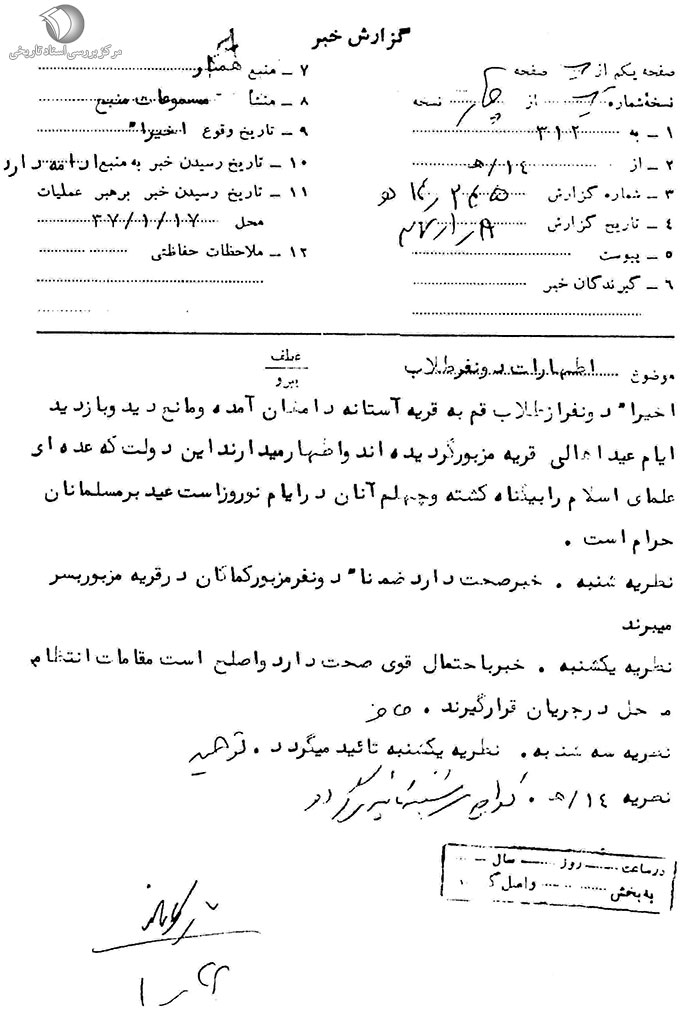 مرکز بررسی اسناد تاریخی
گزارش خبر
صفحه یکم از یک صفحه
نسخه شماره یک از چهار نسخه
۱ - به ۳۱۲
۲ - از ۱۴/ه
۳ - شماره گزارش
۴ - تاریخ گزارش
۵ - پیوست
۶ - گیرندگان خبر
۷ - منبع همکار
۸ - منشأ مسموعات منبع
۹ - تاریخ وقوع اخیراً
۱۰ - تاریخ رسیدن خبر به منبع ادامه دارد
۱۱ - تاریخ رسیدن خبر برهبر عملیات
محل ۳۷/۱/۱۷
۱۲ - ملاحظات حفاظتی
موضوع اظهارات دونفر طلاب
عطف
پیرو
اخیراً دونفر از طلاب قم به قریه آستانه دامغان آمده ومانع دید وبازدید
ایام عید اهالی قریه مزبور گردیده اند واظهار میدارند این دولت که عده ای
علمای اسلام را بیگناه کشته وچهلم آنان در ایام نوروز است عید بر مسلمانان
حرام است .
نظریه شنبه . خبر صحت دارد ضمناً دونفر مزبور کماکان در قریه مزبور بسر
میبرند
نظریه یکشنبه . خبر باحتمال قوی صحت دارد واصلح است مقامات انتظامی
محل در جریان قرار گیرند .
نظریه سه شنبه . نظریه یکشنبه تائید میگردد .
نظریه ۱۴/ه .
در ساعت روز سال
به بخش واصل گ